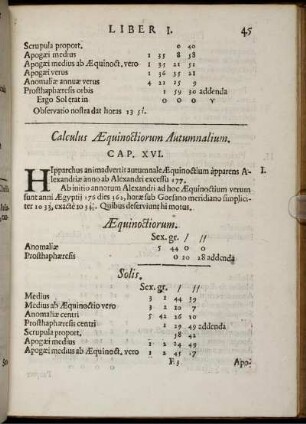 LIBER I. 45
Scrupula proport. 0 40
Apogæi medius 1 35 8 58
Apogæi medius ab Æquinoct. vero 1 35 21 51
Apogæi verus 1 36 35 21
Anomaliæ annuæ verus 4 21 15 9
Prosthaphæresis orbis 1 59 30 addenda
Ergo Sol erat in 0 0 0 γ
Observatio nostra dat horas 13 5/.
Calculus Æquinoctiorum Autumnalium.
CAP. XVI.
HIpparchus animadvertit autumnale Æquinoctium apparens A- I.
lexandriæ anno ab Alexandri excessu 177.
Ab initio annorum Alexandri ad hoc Æquinoctium verum
sunt anni Ægyptij 176 dies 362, horæ sub Goesiano meridiano simplici-
ter 10 33, exactè 10 Quibus deserviunt hi motus.
Æquinoctiorum.
Sex. gr. / //
Anomaliæ 5 44 0 0
Prosthaphæresis 0 20 28 addenda
Solis.
Sex. gr. / //
Medius 3 2 44 39
Medius ab Æquinoctio vero 3 2 20 7
Anomaliæ centri 5 42 26 10
Prosthaphæresis centri 1 29 49 addenda
Scrupula proport. 58 42
Apogæi medius 1 2 24 49
Apogæi medius ab Æquinoct. vero 1 2 45 17
F 3 Apo-